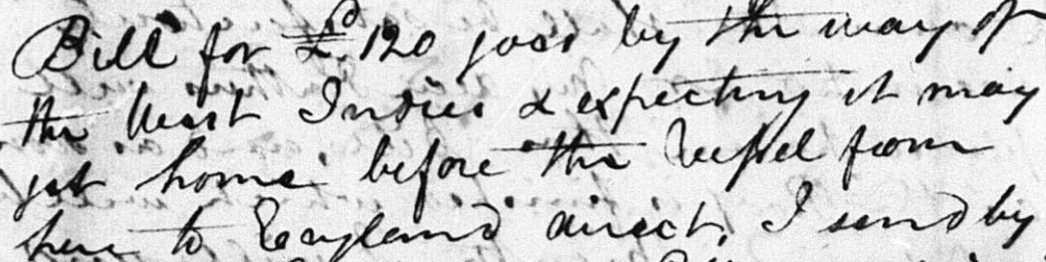 Bill for £120 goes by the way of
the West Indies & expecting it may
get home before the Vessel from
here to England direct, I send by